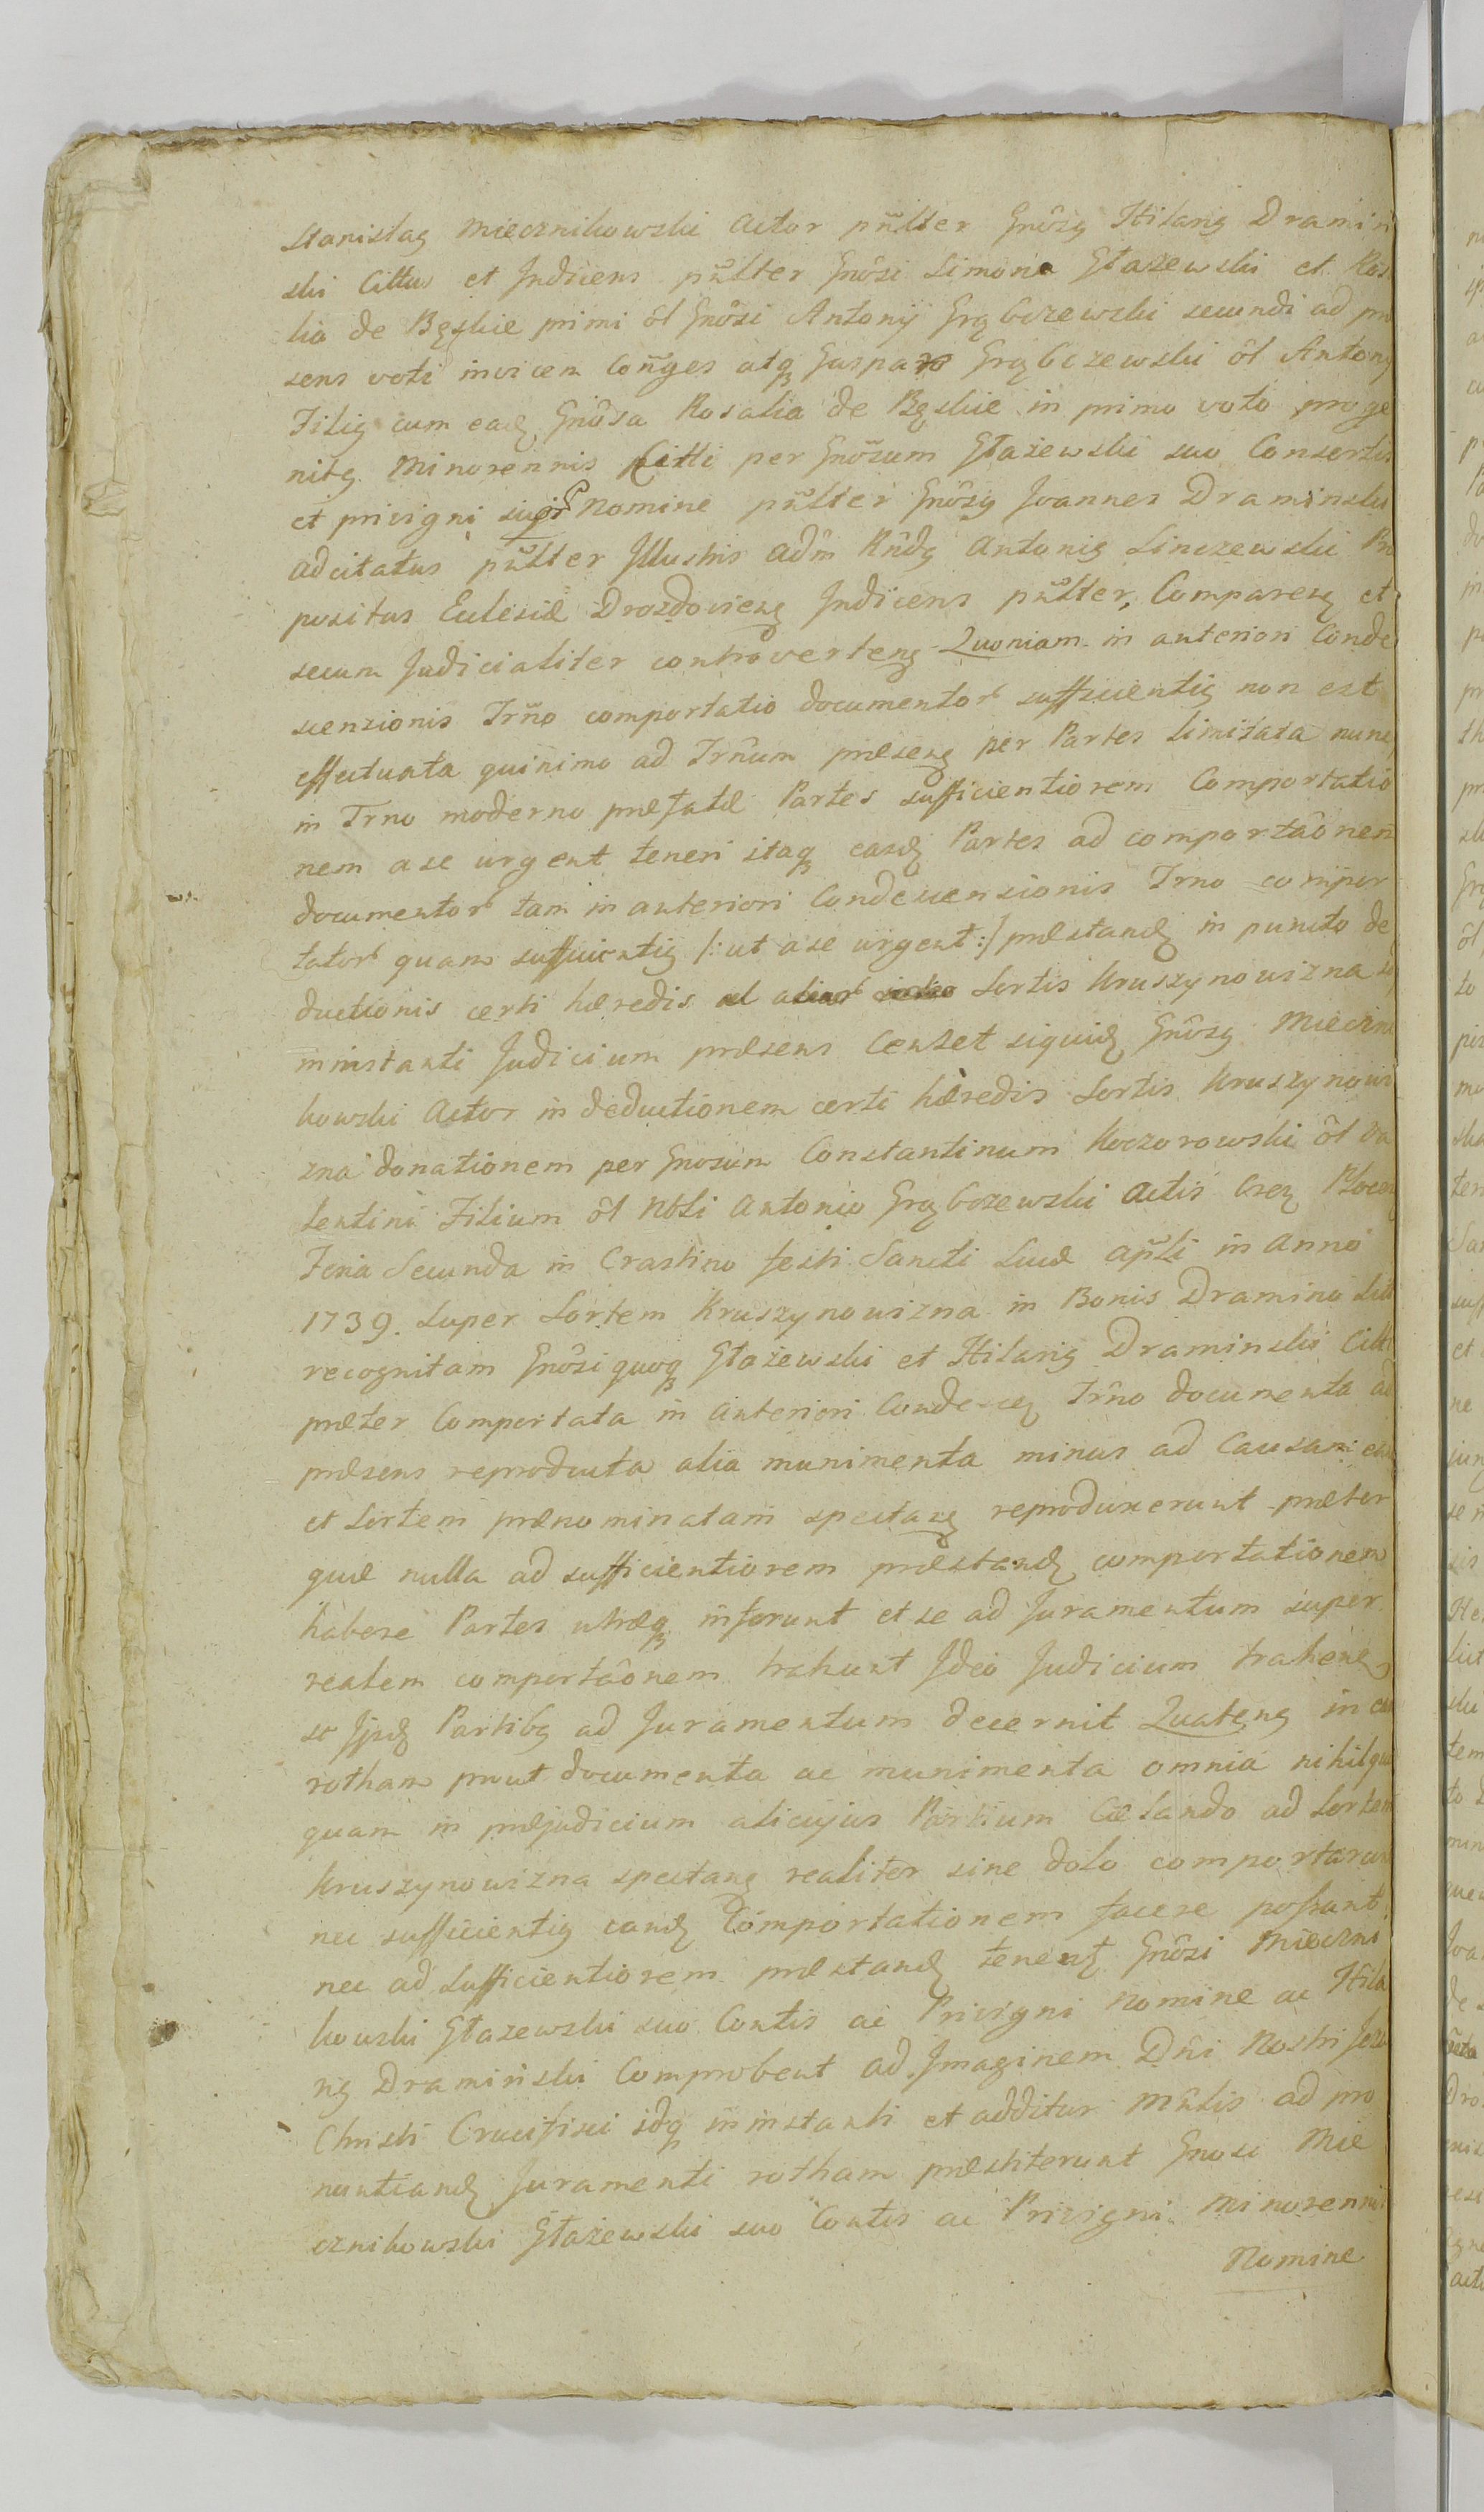 Stanislaꝯ Miecznikowski Actor pn̄lter Gnôsꝯ Hilariꝯ Dramiń
ski Cittus et Indicens pn̄lter Gnôsi Simon Głażewski et Rosa
lia de Bęskie primi ôl Gnôsi Antonij Grąbczewski secundi ad prae
sens voti invicem Con̄ges atqꝫ Gaspar Grąbczewski ôl Antonij
Filiꝯ cum eadꝫ Gnôsa Rosalia de Bęskie in primo voto proge
nitꝯ Minorennis Citti per Gnôsum Głażewski suo Consortis
et privigni suor Nomine pn̄lter Gnôsꝯ Joannes Dramiński
adcitatus pn̄lter Illustris adm̂ Rn̂dꝯ Antoniꝯ Linczewski Prae
positus Eclesiæ Drozdoviensꝫ Indicens pn̄lter, Comparenꝫ et
secum Judicialiter controvertenꝫ Quoniam in anteriori Conde
scensionis Trn̄o comportatio documentor sufficientiꝯ non est
effectuata quinimo ad Trn̂um præsenꝫ per Partes limitata nunc
in Trno moderno præfatæ Partes sufficientiorem Comportatio
nem a se urgent teneri itaqꝫ easdꝫ Partes ad comportâonem
documentor tam in anteriori Condescensionis Trno compor
tator quam sufficientiꝯ /: ut a se urgent :/ præstandꝫ in puncto de
ductionis certi hæredis Sortis Kruszynowizna
in instanti Judicium præsens Censet siquidꝫ Gnôsꝯ Mieczni
kowski Actor in deductionem certi hæredis Sortis Kruszynowi
zna donationem per Gnosum Constantinum Koczorowski ôl Va
lentini Filium ôl Nbli Antonio Grąbczewski Actis Cren Plocen
Feria Secunda in Crastino festi Sancti Lucæ Ap̄li in Anno
1739. super Sortem Kruszynowizna in Bonis Dramino
recognitam Gnôsi quoqꝫ Głażewski et Hilariꝯ Dramiński Citti
præter Comportata in Anteriori Condescenꝫ Trn̂o documenta ad
præsens reproducta alia munimenta minus ad Causam eam
et Sortem prænominatam spectanꝫ reproduxerunt præter
quæ nulla ad sufficientiorem præstandꝫ comportationem
habere Partes utræqꝫ inferunt et se ad Juramentum super
realem comportâonem trahunt Ideo Judicium trahenꝫ
se Ijsdꝫ Partibꝯ ad Juramentum decernit Quatenꝯ in eam
rotham prout documenta ac munimenta omnia nihilqua
quam in præjudicium alicujus Partium Cælando ad Sortem
Kruszynowizna spectanꝫ realiter sine dolo comportarunt
nec sufficientiꝯ eandꝫ Comportationem facere possunt
nec ad Sufficientiorem præstandꝫ tenent Gnôsi Mieczni
kowski Głażewski suo Contis ac Privigni Nomine ac Hila
riꝯ Dramiński Comprobent ad Imaginem Dn̂i Nostri Jesu
Christi Crucifixi idqꝫ in instanti et additur Mn̂lis ad pro
nuntiandꝫ Juramenti rotham præstiterunt Gnosi Mie
cznikowski Głażewski suo Contis ac Privigni Minorennis
Nomine